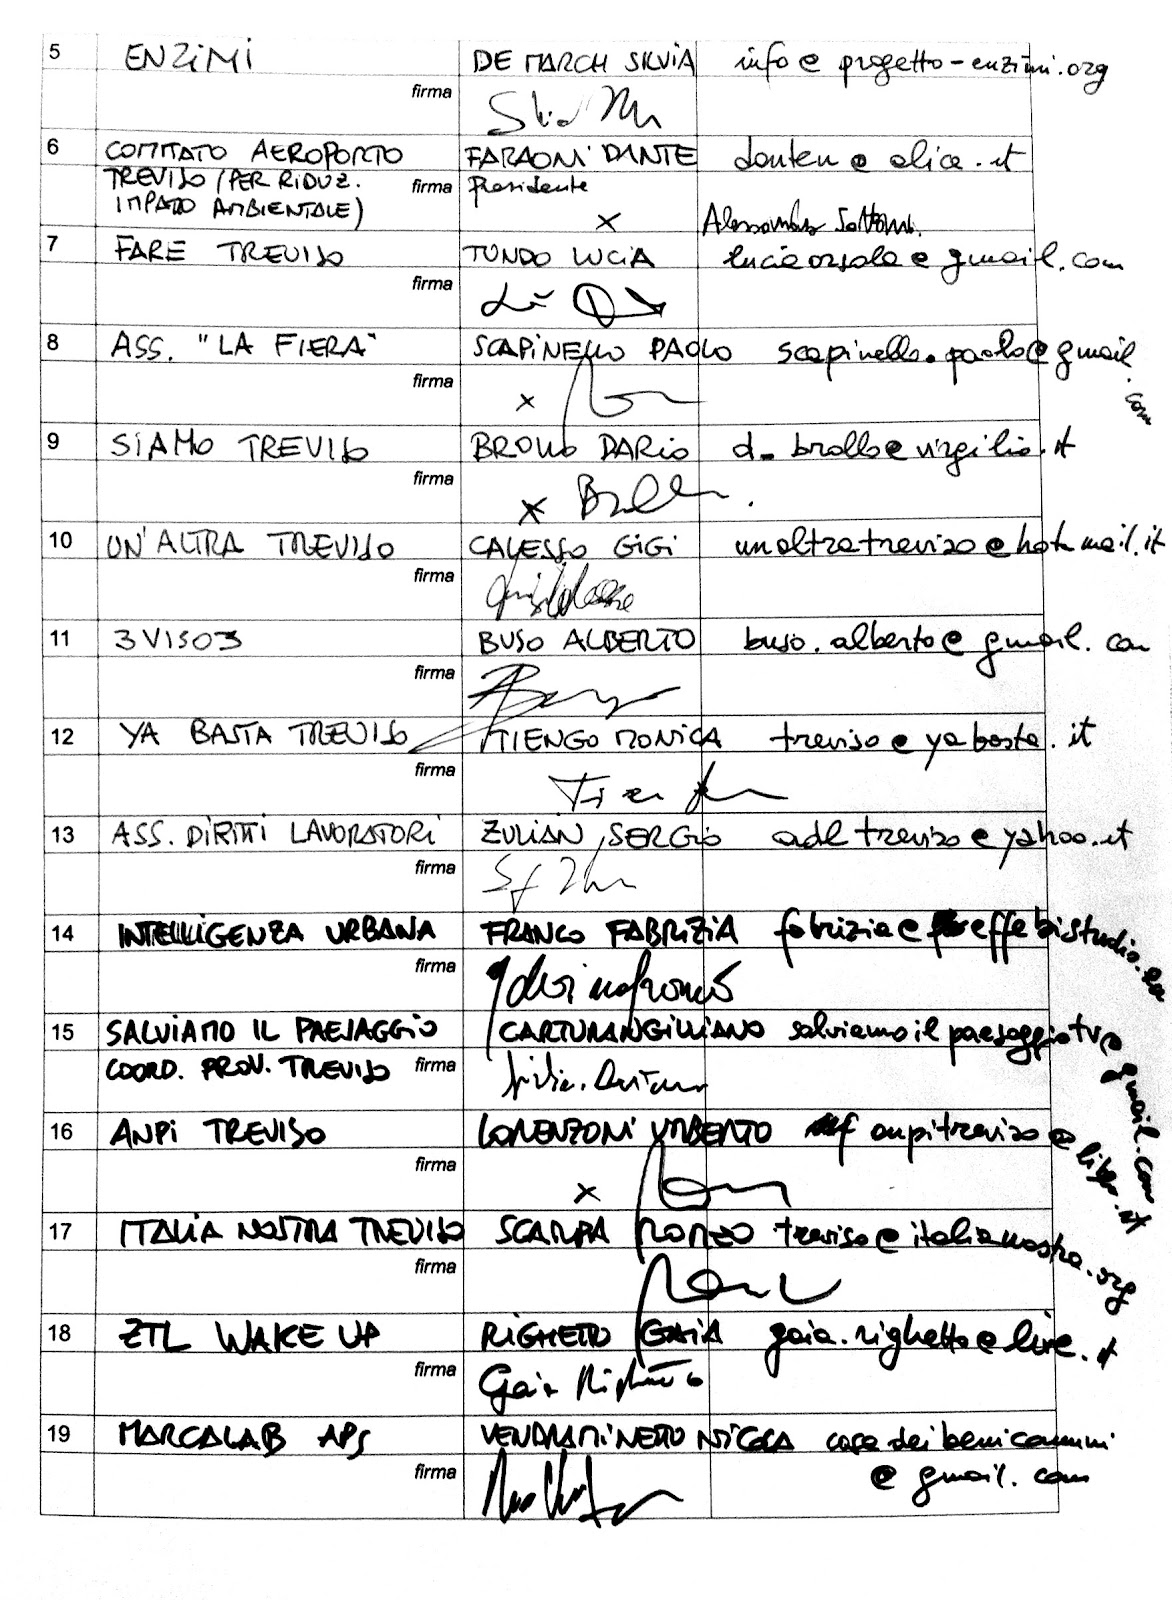 5 ENZIMI DE MARCH SILVIA info@progetto-enzimi.org
firma
6 COMITATO AEROPORTO FARAONI DANTE danten@alice.it
TREVISO (PER RIDUZ. firma Presidente
IMPATTO AMBIENTALE) x Alessandra
7 FARE TREVISO TONDO LUCIA luciaorsola@gmail.com
firma
8 ASS. "LA FIERA" SCAPINELLO PAOLO scapinello.paolo@gmail.com
firma x
9 SIAMO TREVISO BROLLO DARIO d.brollo@virgilio.it
firma x
10 UN'ALTRA TREVISO CALESSO GIGI unaltratreviso@hotmail.it
firma
11 3VISO3 BUSO ALBERTO buso.alberto@gmail.com
firma
12 YA BASTA TREVISO TIENGO MONICA treviso@yabasta.it
firma
13 ASS. DIRITTI LAVORATORI ZULIAN SERGIO adltreviso@yahoo.it
firma
14 INTELLIGENZA URBANA FRANCO FABRIZIA fabrizia@effebistudio.eu
firma
15 SALVIAMO IL PAESAGGIO CARTURAN GIULIANO salviamoilpaesaggiotv@gmail.com
COORD. PROV. TREVISO firma
16 ANPI TREVISO LORENZONI UMBERTO anpitreviso@libero.it
firma x
17 ITALIA NOSTRA TREVISO SCARPA ROMEO treviso@italianostra.org
firma
18 ZTL WAKE UP RIGHETTO GAIA gaia.righetto@live.it
firma Gaia Righetto
19 MARCALAB APS VENDRAMINETTO NICOLA casadeibenicomuni
firma @gmail.com